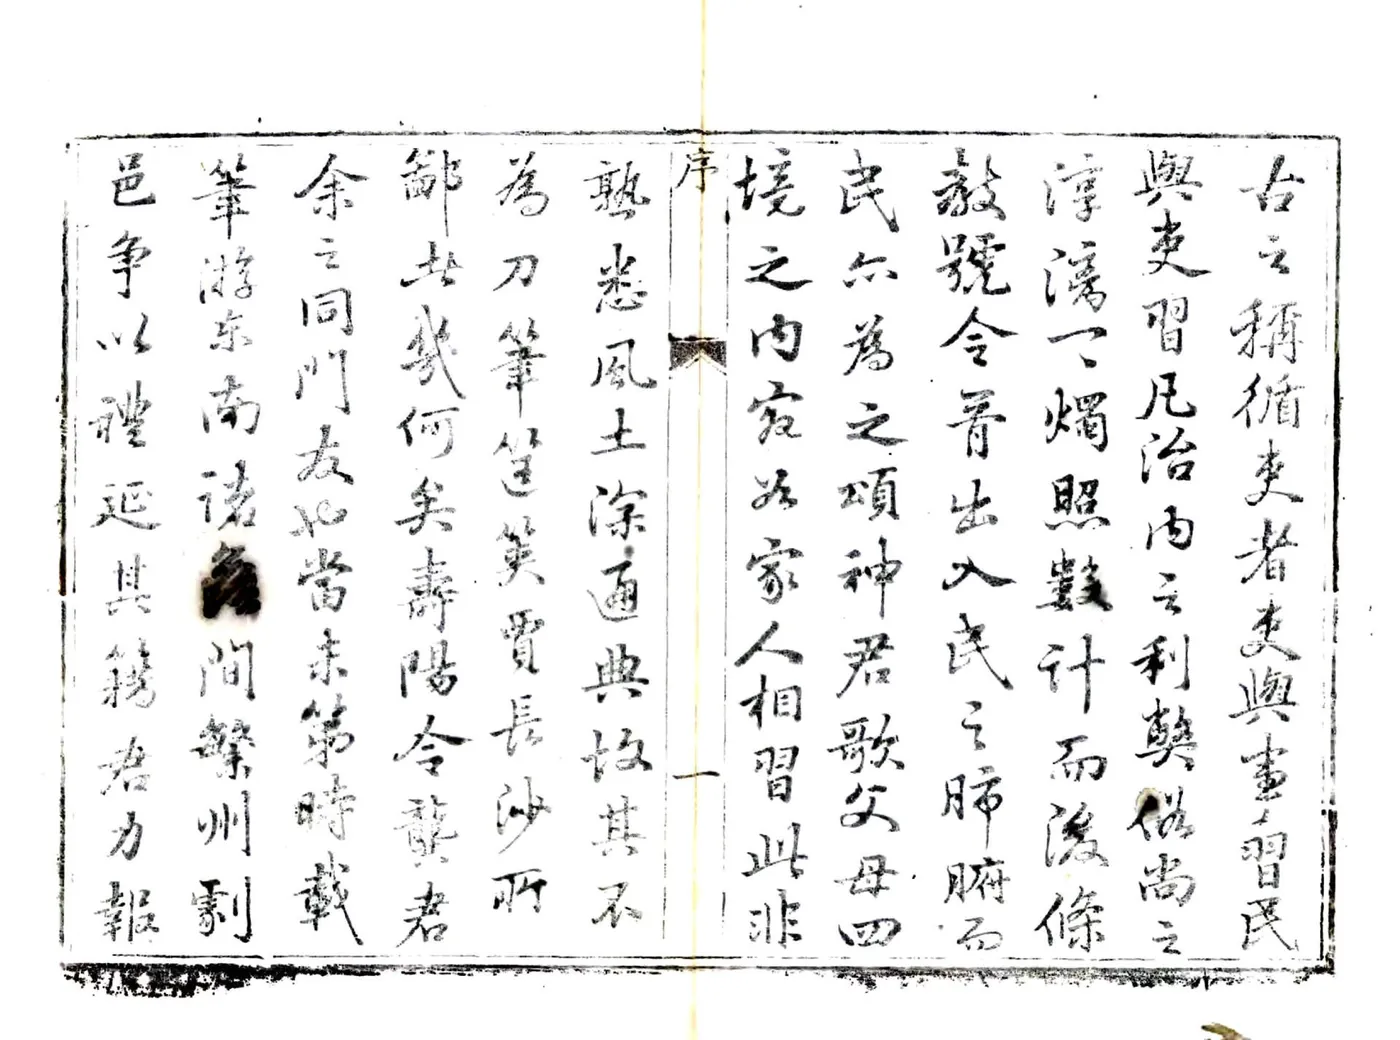 古之稱循吏者吏與畫習民
與吏習凡治内之利弊俗尚之
淳漓一一燭照數計而後條
教號令音出入民之肺腑而
民亦為之頌神君歌父母四
境之内宛如家人相習此非
序
一
熟悉風土深通典故其不
為刀筆筐篋賈長沙所
鄙者幾何矣壽陽令龔君
余之同門友也當未第時載
筆游东南諸間繁州劇
邑争以禮延其籌君力報